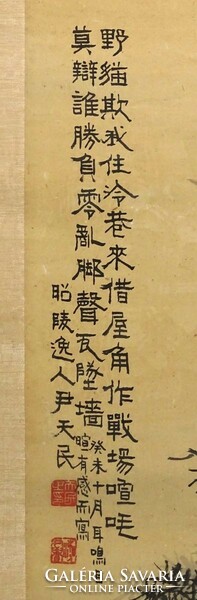 野貓欺我住冷巷來借屋角作戰場喧吒
莫辯誰勝負零亂脚聲瓦墜墻癸未十月耳鳴
暄有感而寫
昭陵逸人尹天民
GALÉRIA SAVARIA
ONLINE PIACTÉR